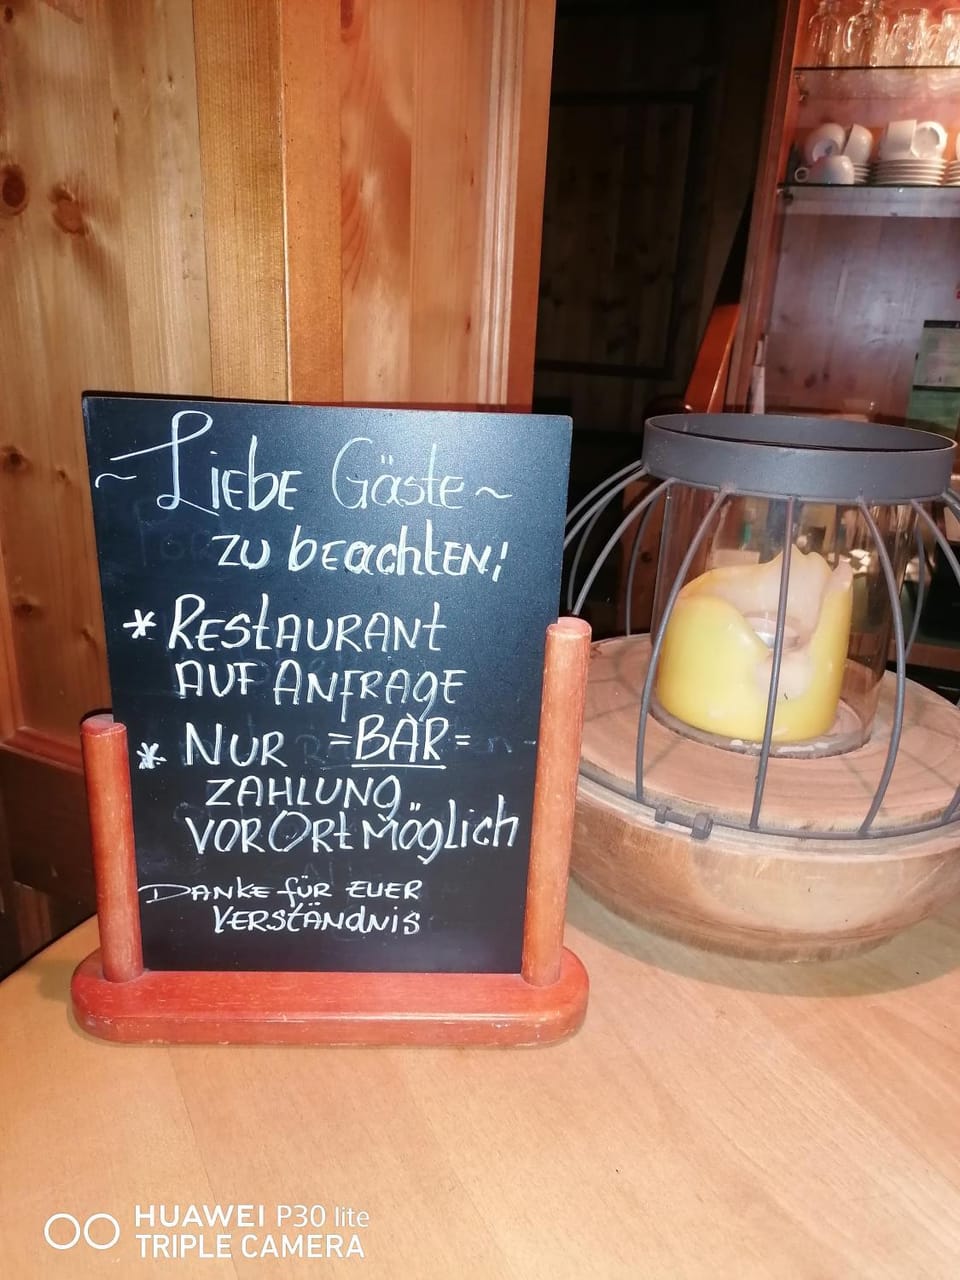 ~ Liebe Gäste ~
zu beachten!
* Restaurant
auf Anfrage
* Nur =BAR=
Zahlung
vor Ort möglich
Danke für euer
Verständnis
HUAWEI P30 lite
TRIPLE CAMERA